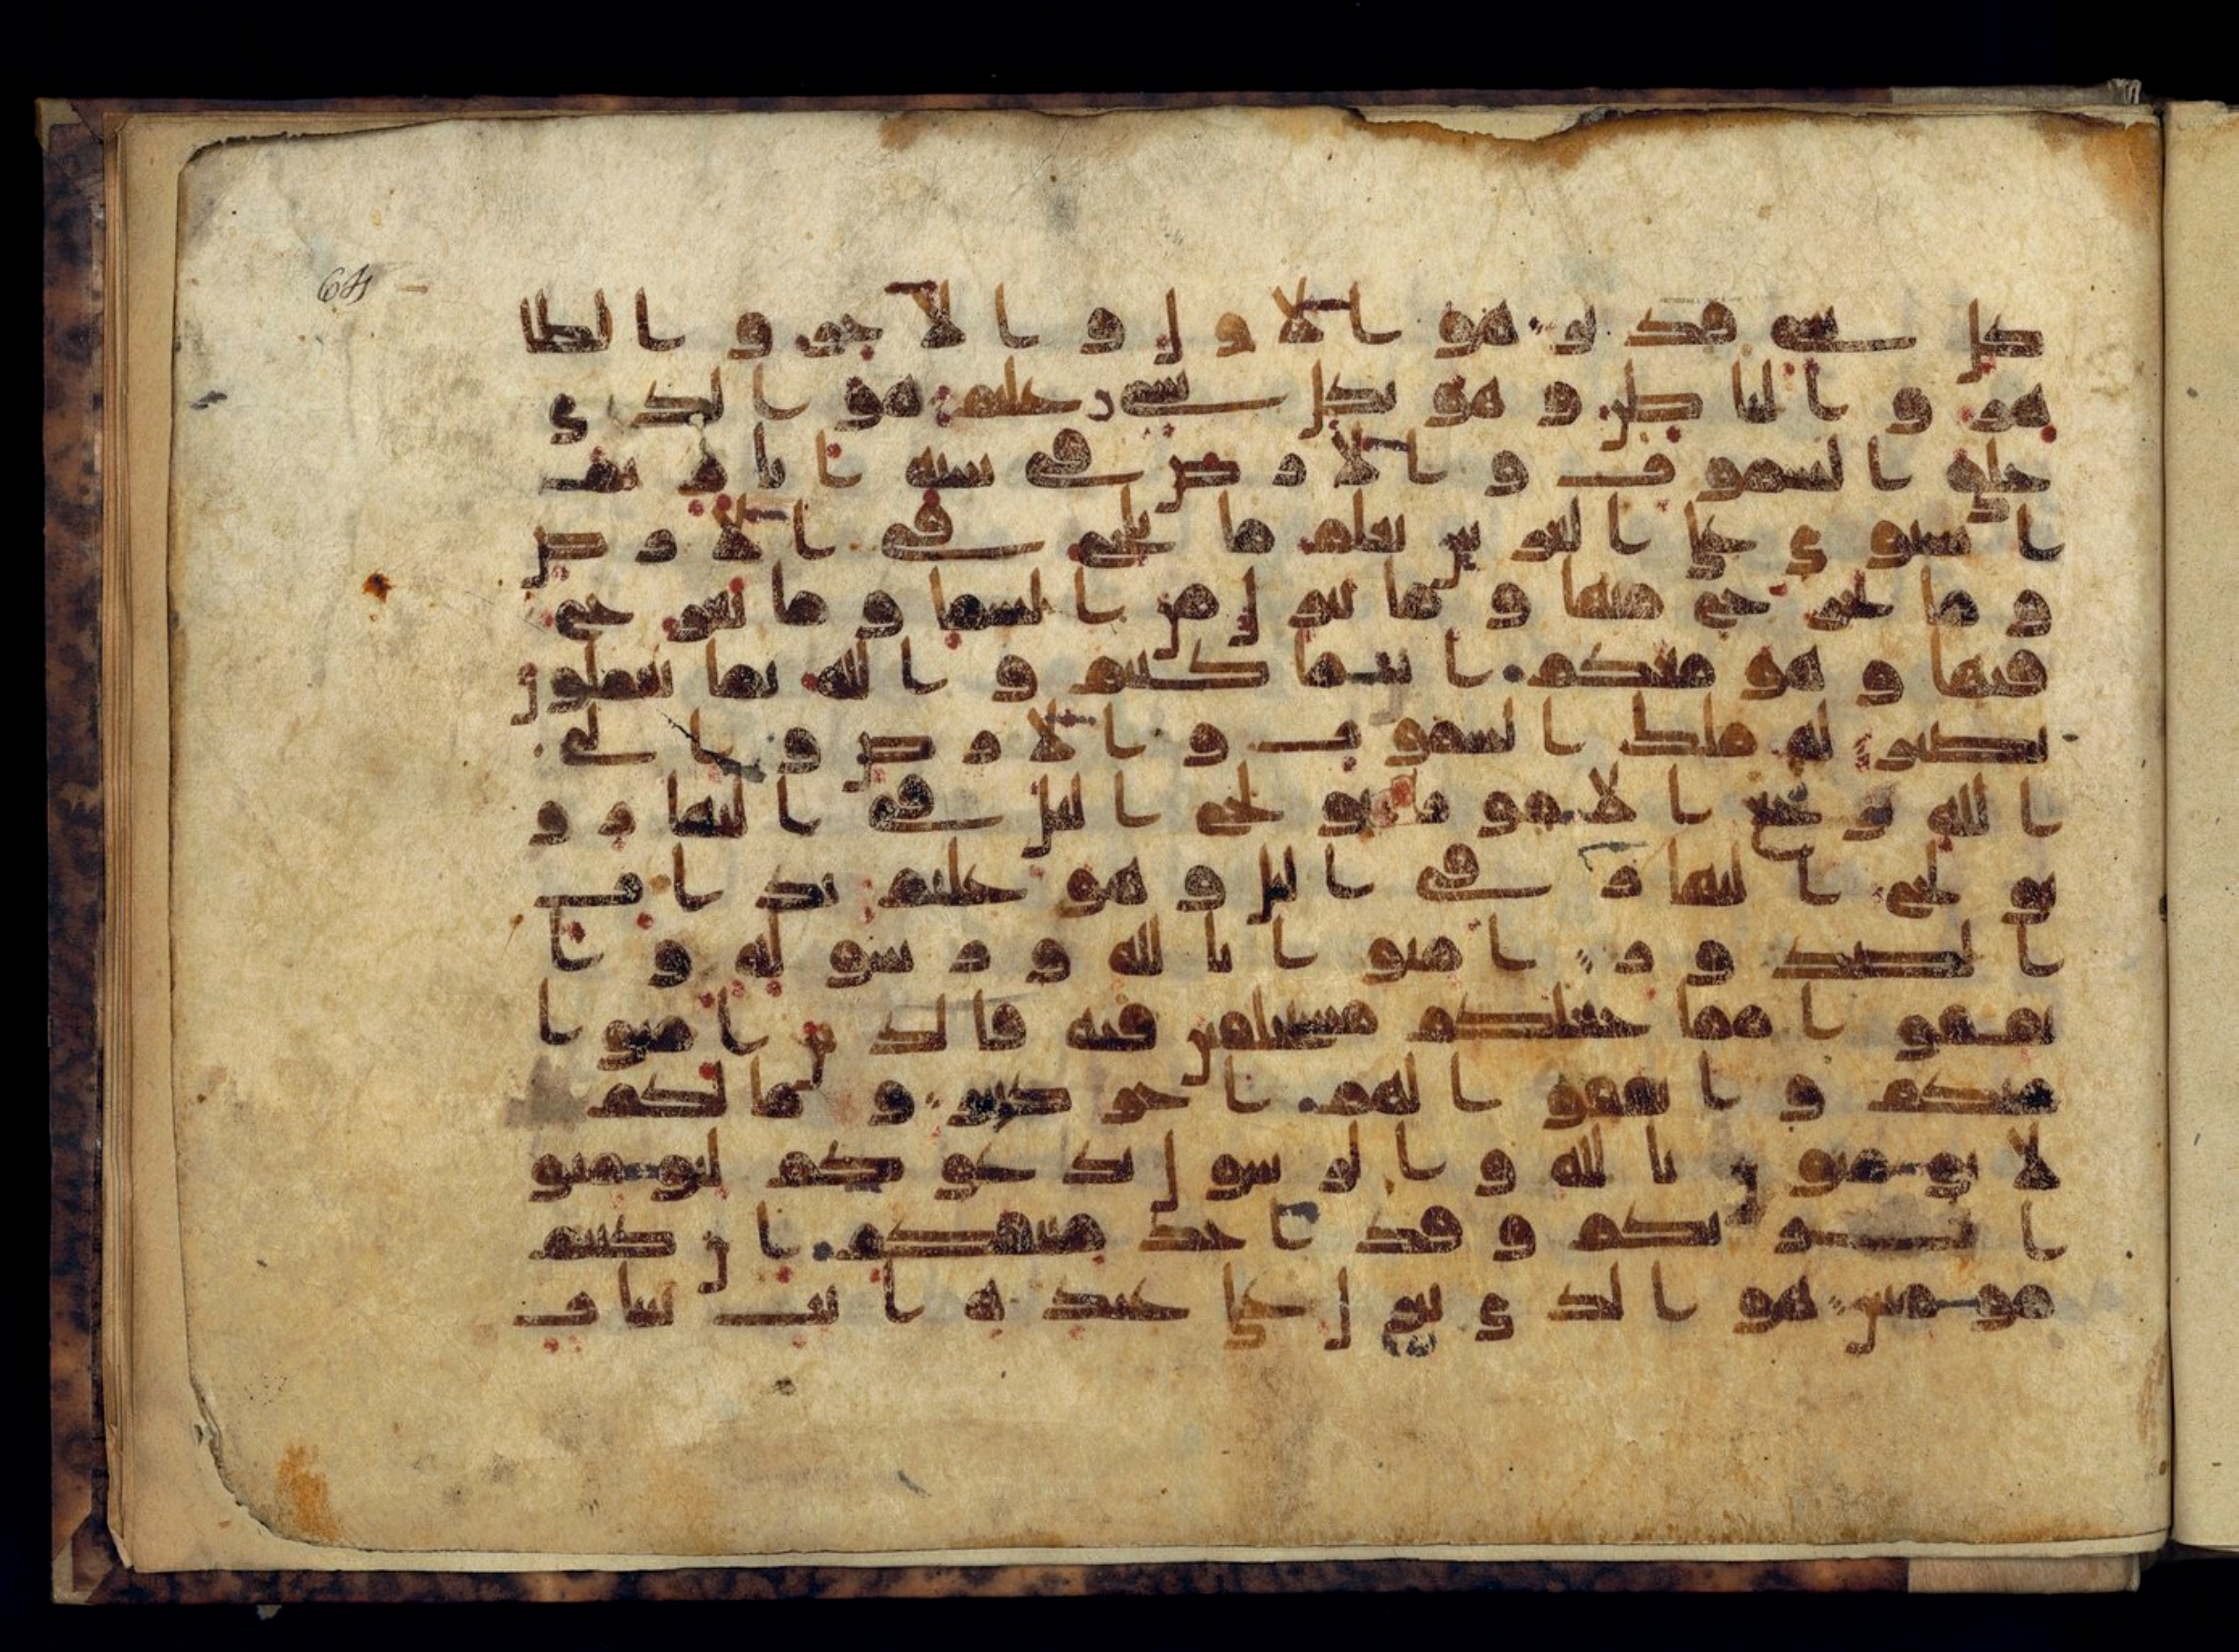 64
كل شي قدير هو الاول و الاخر و الظا
هر و الباطن و هو بكل شي عليم هو الذي
خلق السموت و الارض في ستة ايام ثم
استوي علي العرش يعلم ما يلج في الارض
و ما يخرج منها و ما ينزل من السما و ما يعرج
فيها و هو معكم اينما كنتم و الله بما تعملون
بصير له ملك السموت و الارض و الي
الله ترجع الامور يولج اليل في النهار و
يولج النهار في اليل و هو عليم بذات
الصدور امنوا بالله و رسوله و ا
نفقوا مما جعلكم مستخلفين فيه فالذين امنوا
منكم و انفقوا لهم اجر كبير و ما لكم
لا تومنون بالله و الرسول يدعوكم لتومنو
ا بربكم و قد اخذ ميثقكم ان كنتم
مومنين هو الذي ينزل علي عبده ايت بينات